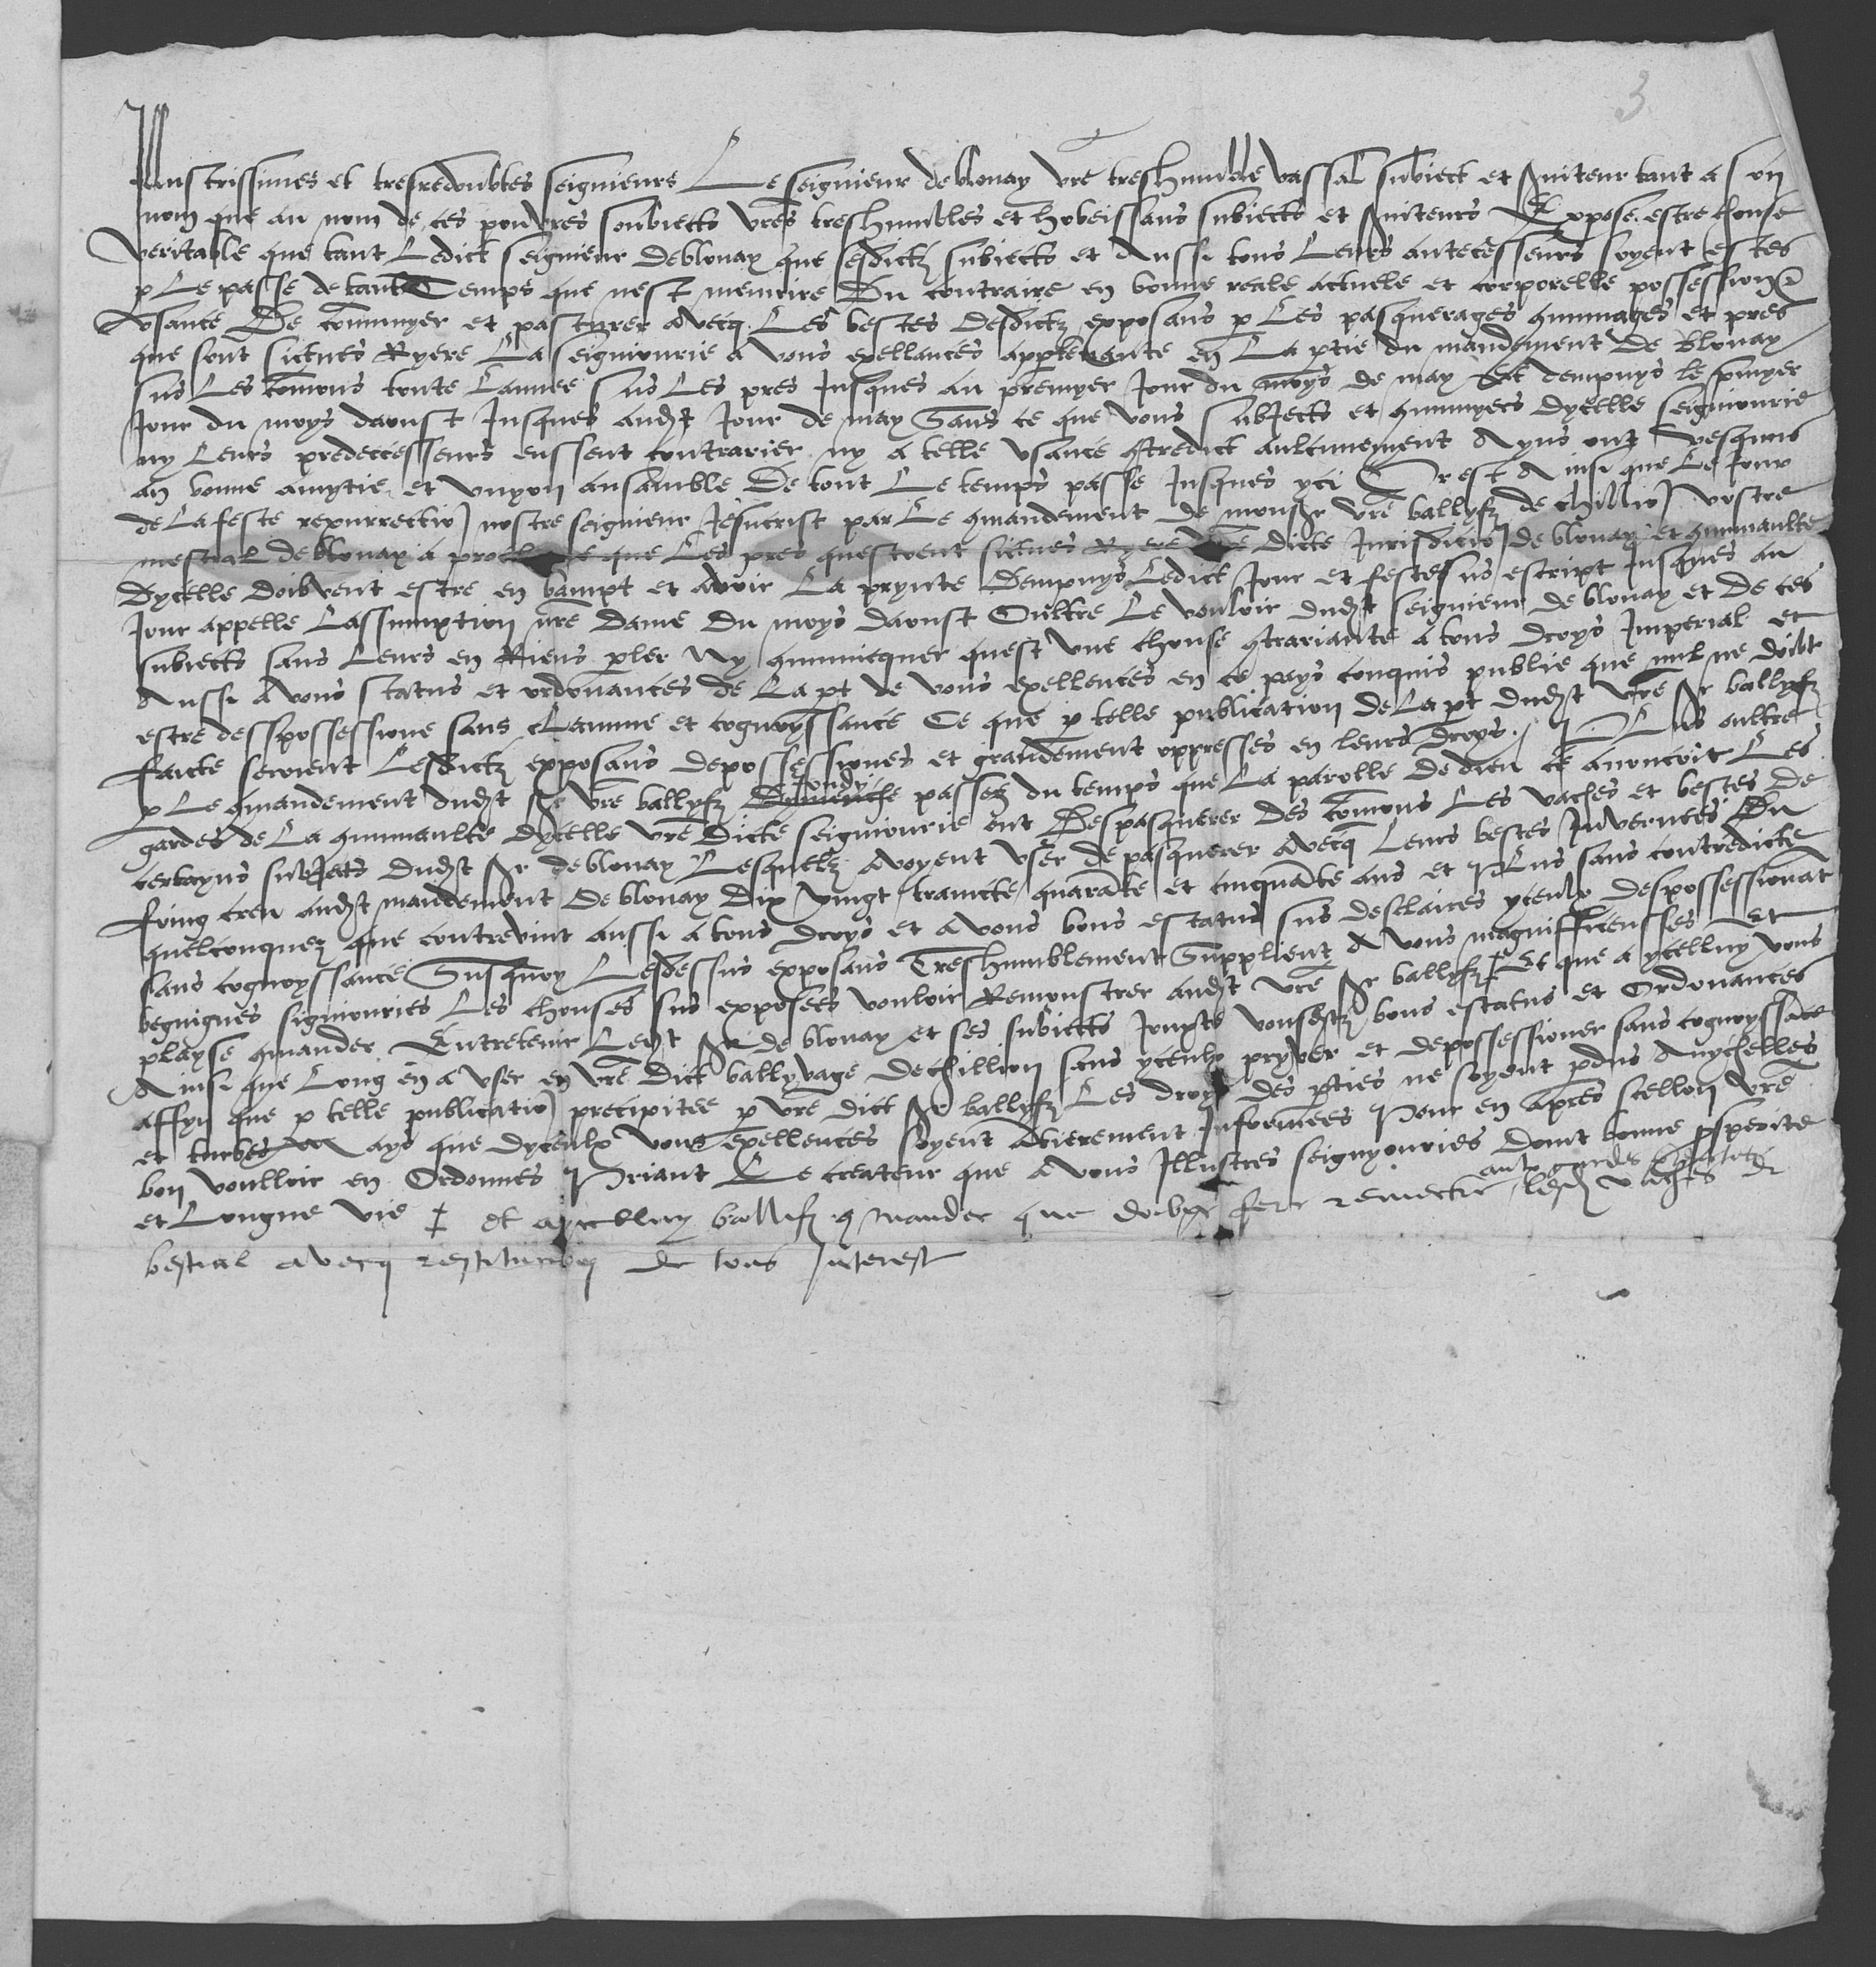 3
Illustrissimes et tresredoubtes seignieurs Le seignieur de blonay vre treshumble vassal subiect et s'viteur tant a son
nom que au nom de ces pouvres soubiects vres treshumbles et hobeissans subiects et s'viteurs Expose estre chouse
veritable que tant Ledict seignieur de blonay que sesdictz subiects et Aussi tous Leurs antecesseurs soyent estes
p Le passe de tant Temps que nest memoire Du contraire en bonne reale actuele et corporelle possession
Usance De commuyer et pasturer avecq Les bestes desdictz exposans p Les pasquerages gmunages et pres
que sont sictues Ryere La seigniourie a vous exellances appartenante en La ptie du mandement De Blonay
sus Les comons toute Lannee sus Les pres Jusques au premyer Jour du moys de may Et dempuys le p'myer
Jour du moys daoust Jusques audst Jour de may Sans ce que vous subjects et gmunyers dycelle seigniourie
ny Leurs predecesseurs eussent contrarier ny a telle Usance gtredict aulcunement Ayns ont vesqus
an bonne amytie et Unyon ansamble De tout Le temps passe Jusques yci Or est Ainsi que Le Jour
de La feste rexurrectio nostre seignieur Jesucrist par Le gmandement de monsr vre ballyfz de chillio vostre
mestral de blonay a que Les pres questoent sictues Ryere dicte Jurisdictio de blonay et gmunaulte
Dycelle doibvent estre en bampt et avoir La prynte Dempuys Ledict Jour et feste sus escript Jusques au
Jour appelle Lassumption nre Dame Du moys daoust Oultre Le vouloir dudst seignieur de blonay et de ces
subiects sans Leurs en Riens pler Ny gmunicquer quest Une chouse gtrariante a tous Droys Imperial et
Aussi a vous status et ordonances de La pt de vous exellences en ce pays conquis publie que nul ne doibt
estre desspossessione sans clamme et cognoyssance Ce que p telle publication de La pt dudst vre sr ballyfz
faicte seroient Lesdictz exposans depossessiones et grandement oppresses en leurs droys. Plus oultre
p Le gmandement dudst sr vre ballyfz Dymenche Jondy passez du temps que La parolle De dieu ce anoncoit Les
gardes de La gmunaulte dycelle vre Dicte seigniourie ont Despasquerer Des comons Les vaches et bestes de
certayns subjects Dudst sr de blonay Lesquelz avoyent user de pasquerer avecq Leurs bestes Invernees Du
foing creu audst mandement De blonay Dix vingt trancte quarante et cinquante ans et Plus sans contredicte
quelconquez que contrevint aussi a tous droys et a vous bons estatus sus desclaires yceulx despossessionat
sans cognoyssance Susquoy Lesdessus exposans Treshumblement Supplient A vous magnifficensses Et
begnignes signiouries Les chouses sus exposees vouloir Remonstrer audst vre sr ballyfz ‡ Et que a ycelluy vous
playse gmander Entretenir Ledst sr de blonay et ses subiects Jouxte vousdstz bons estatus et Ordonances
Ainsi que Long en a User en vre Dict ballyvage de chillion sans yceulx pryver et depossessioner sans cognoyssace
affyn que p telle publicatio precipitee p vre dict sr ballyfz Les droys des pties ne soyent pdus Anychelles
et turbes Mays que dyceulx vous exellences soyent Atierement Informees Pour en apres scellon vre
bon voulloir en Ordonnes Priant Le createur que a vous Illustres seignyouries Doint bonne prsperite
et Longue Vie ‡ et aycelluy ballifz gmander que doibge fere remectre aulx gardes lesdz vaches &
bestial avecq restitution de tous Interest